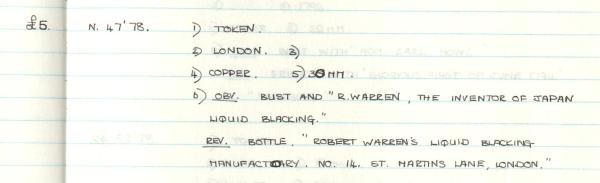 £5. N. 47'78. 1) TOKEN.
2) LONDON. 3)
4) COPPER. 5) 30 MM.
6) OBV. BUST AND "R. WARREN, THE INVENTOR OF JAPAN
LIQUID BLACKING."
REV. BOTTLE. "ROBERT WARREN'S LIQUID BLACKING
MANUFACTORY. NO. 14. ST. MARTINS LANE, LONDON."